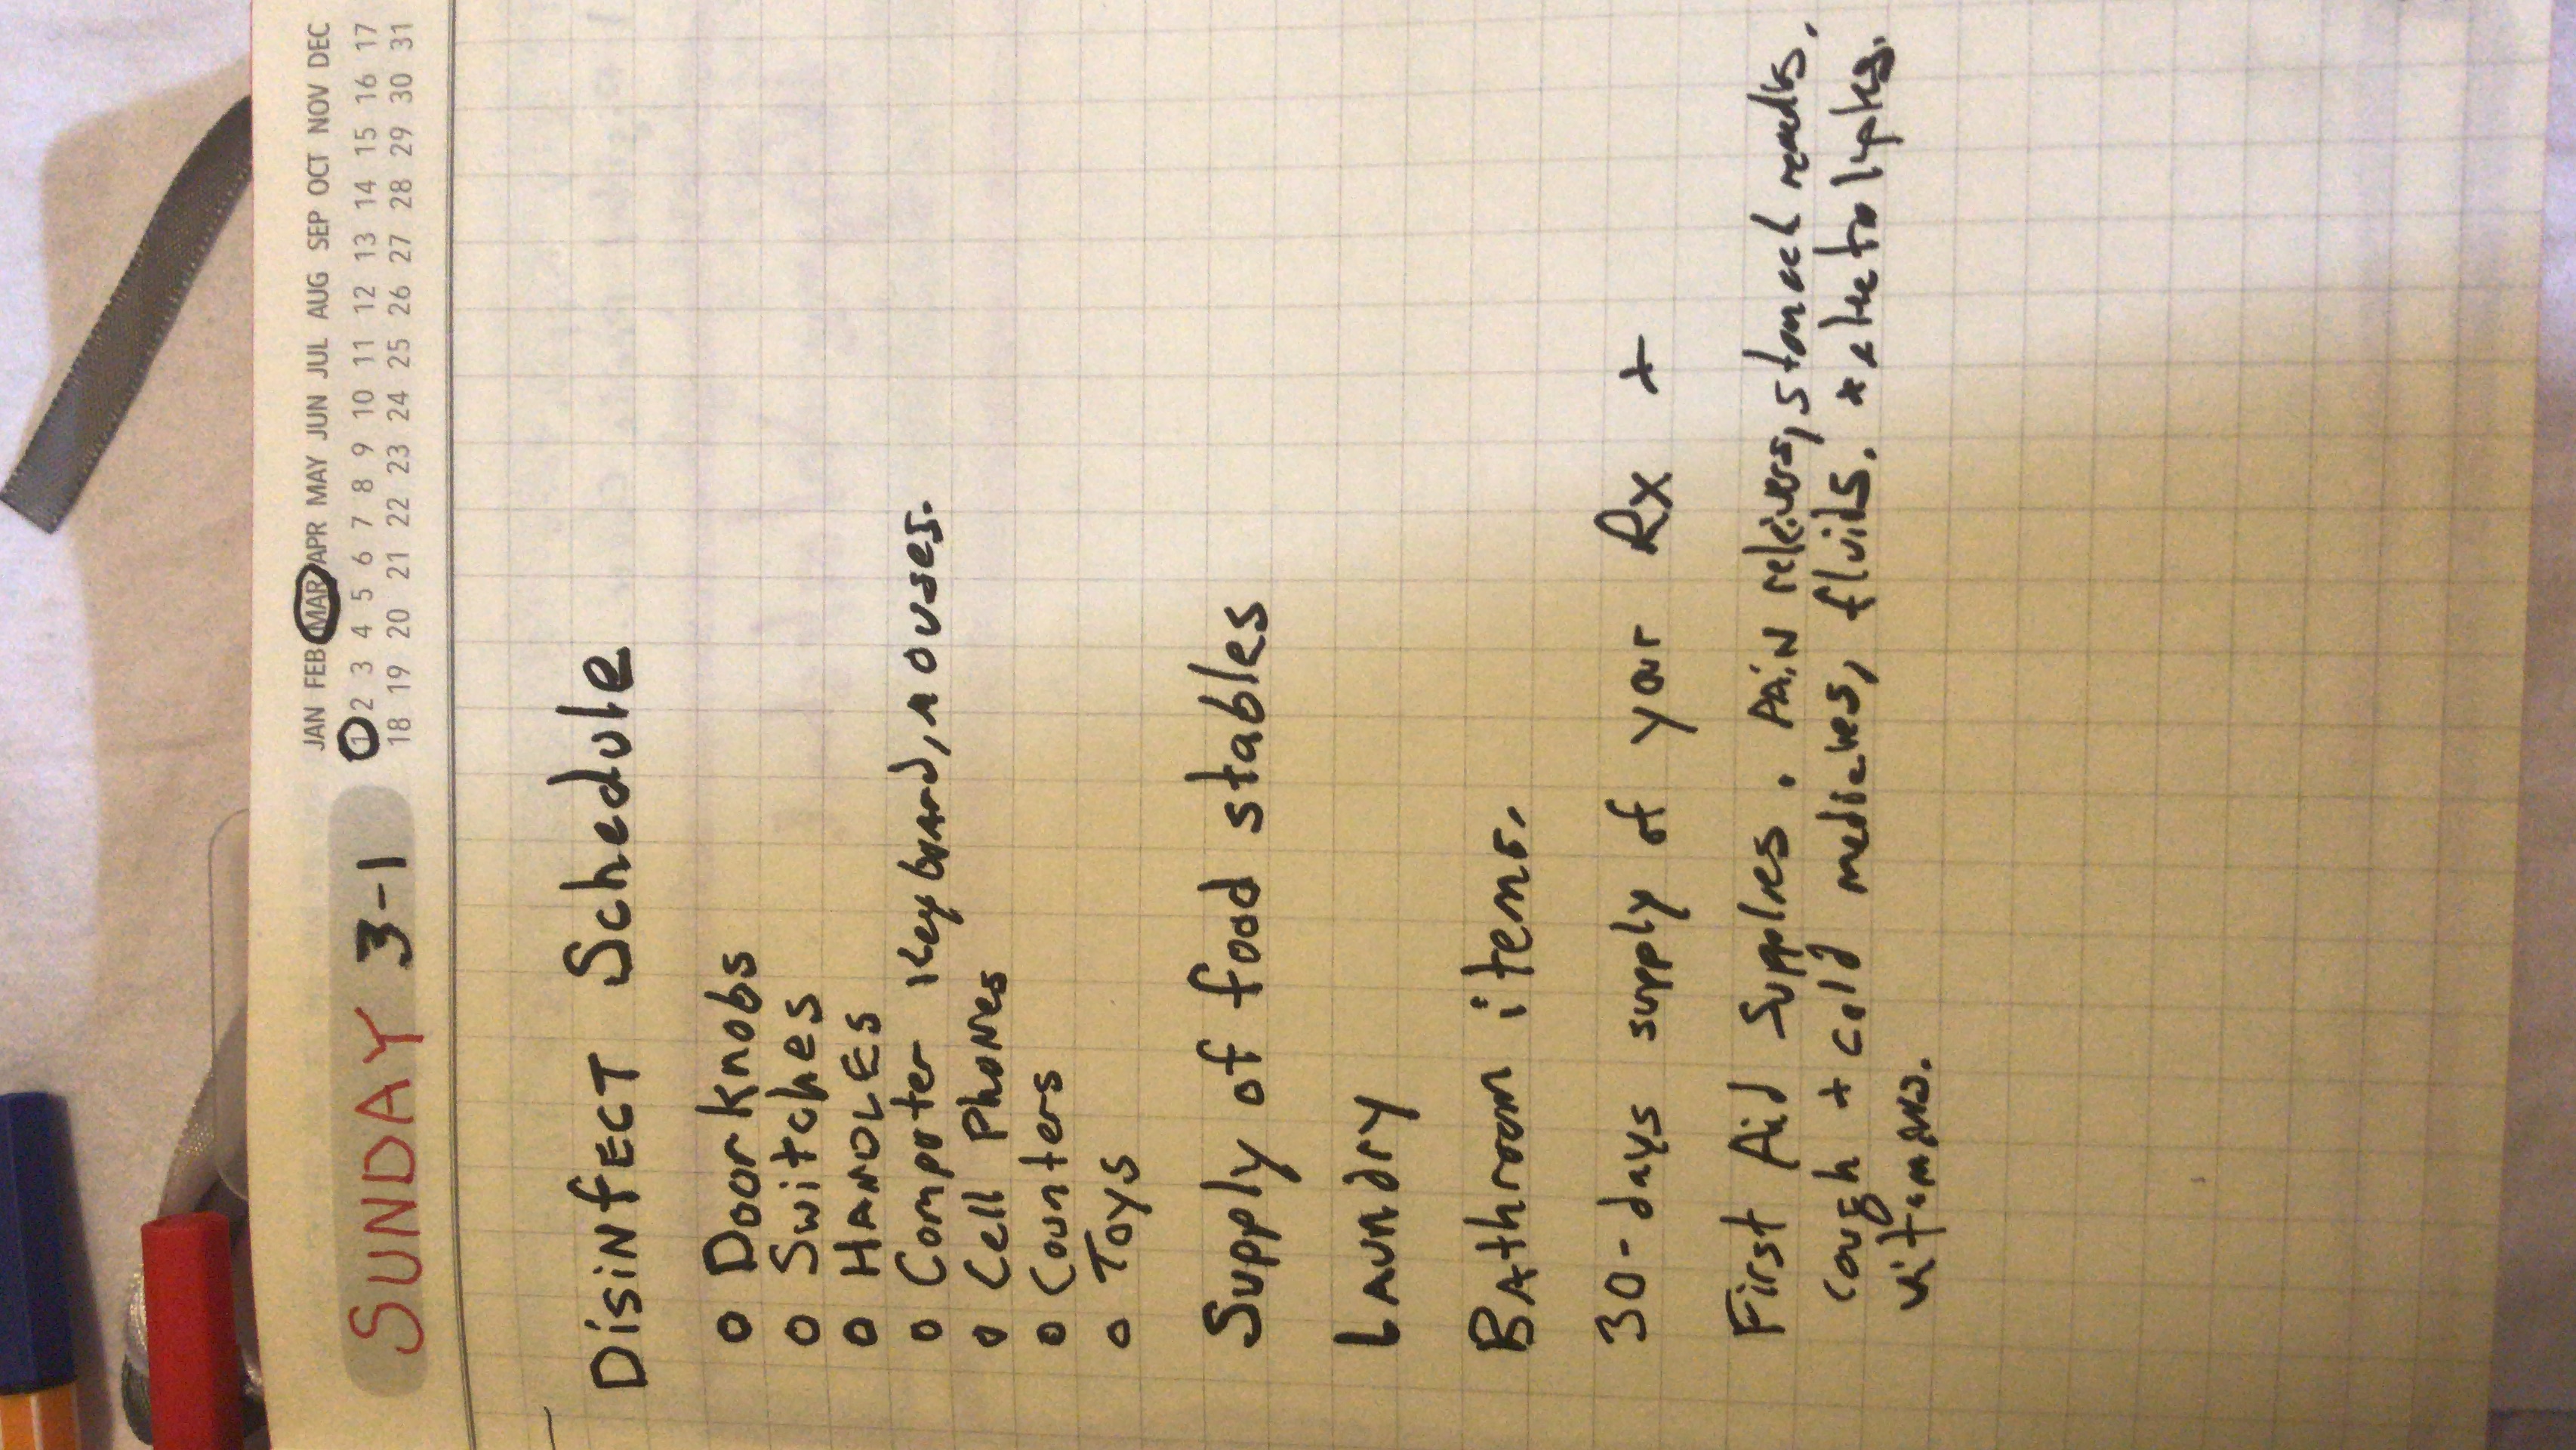 JAN FEB MAR APR MAY JUN JUL AUG SEP OCT NOV DEC
SUNDAY 3-1
1 2 3 4 5 6 7 8 9 10 11 12 13 14 15 16 17
18 19 20 21 22 23 24 25 26 27 28 29 30 31
DisiNfECT Schedule
o Door knobs
o Switches
o HANDLES
o Computer Keyboard, mouses.
o Cell Phones
o Counters
o Toys
Supply of food stables
Laundry
BAthroom items.
30-days supply of your Rx +
First Aid Supplies. PAiN relievers, stomach meds,
cough + cold medicines, fluids. *electrolytes.
vitamins.